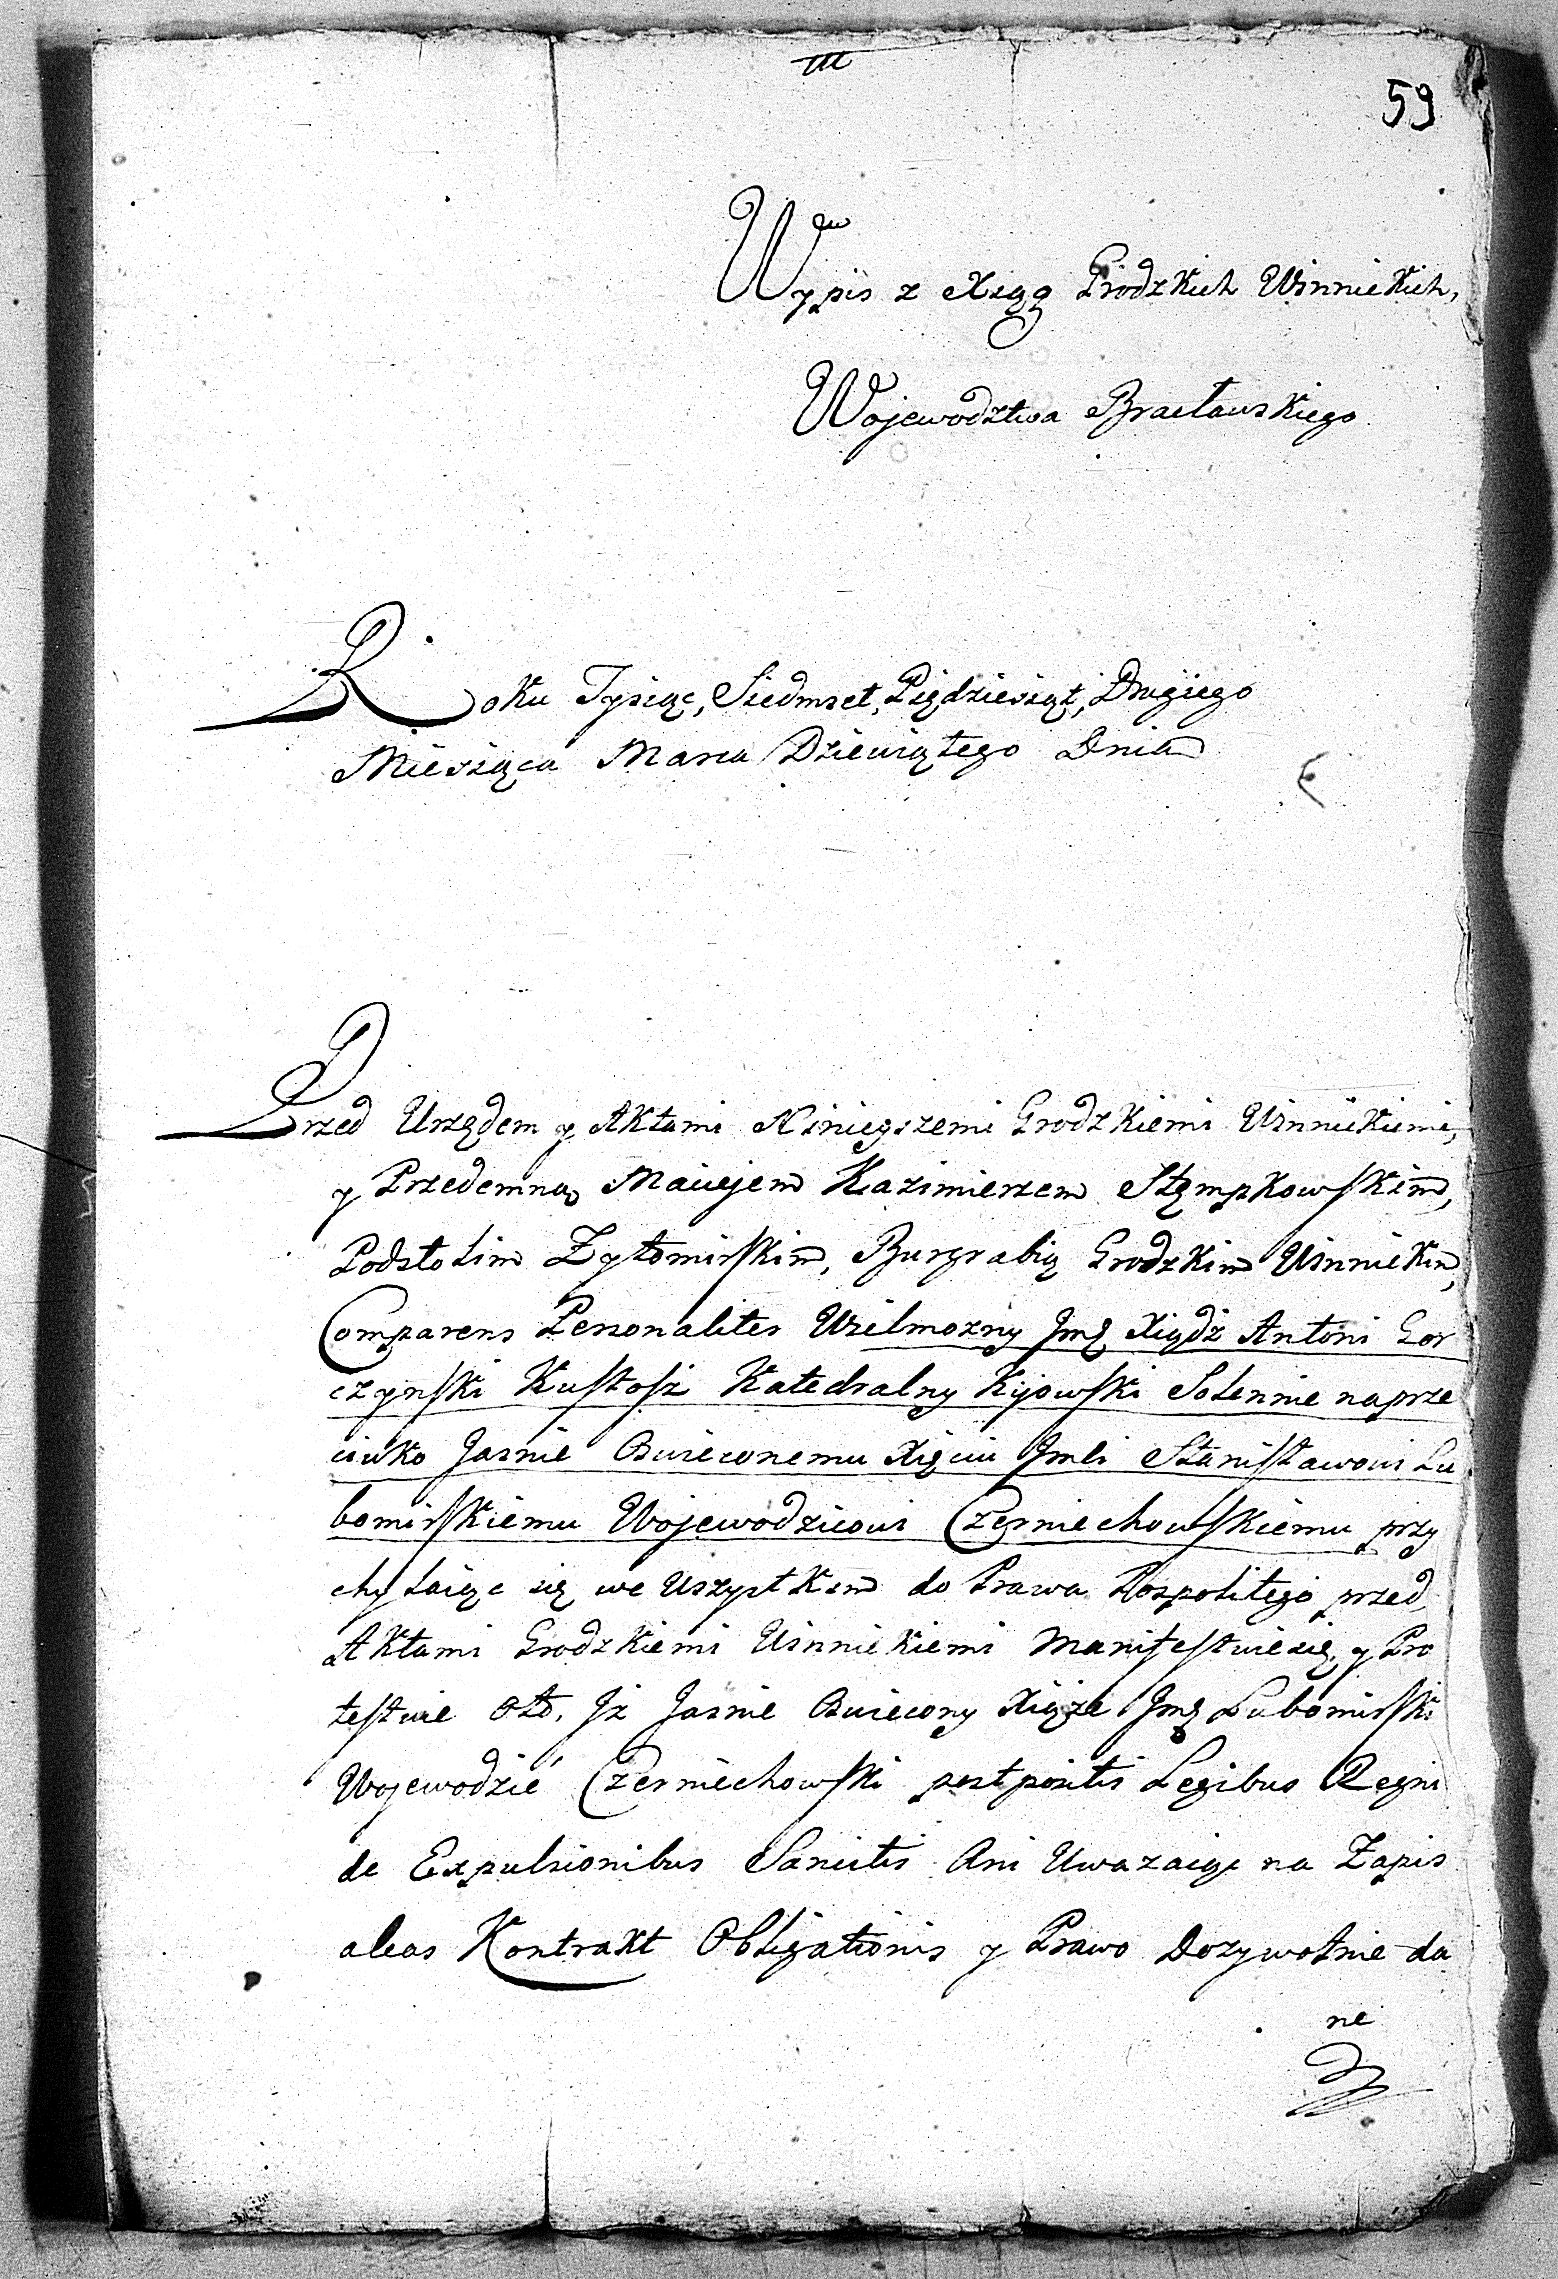 59
Wypis z Xsiąg Grodzkich Winnickich,
Wojewodztwa Bracławskiego
Roku Tysiąc, Siedmset, Piędziesiąt, Drugiego
Miesiąca Marca Dziewiątego Dnia
Przed Urzędem y Aktami Ninieyszemi Grodzkiemi Winnickiemi,
y Przedemną Maciejem Kazimierzem Stęmpkowskim,
Podstolim Zytomirskim, Burgrabią Grodzkim Winnickim,
Comparens Personaliter Wielmozny Jmę Xiądz Antoni Gor
czynski Kustosz Katedralny Kijowski Solennie naprze
ciwko Jasnie Oswieconemu Xięciu Jmci Stanisławowi Lu
bomirskiemu Wojewodzicowi Czerniechowskiemu przy
chylaiąc się we Wszystkim do Prawa Pospolitego przed
Aktami Grodzkiemi Winnickiemi Manifestuie się, y Pro
testuie oto, Jz Jasnie Oswiecony Xiąze Jmę Lubomirski
Wojewodzić Czerniechowski postpositis Legibus Regni
de Expulsionibus Sancitis Ani Uwazaiąc na Zapis
alias Kontrakt Obligationis y Prawo Dozywotnie da
ne